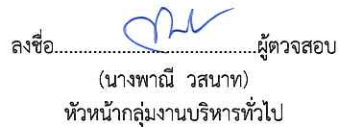 ลงชื่อ..........................................ผู้ตวจสอบ
(นางพาณี วสนาท)
หัวหน้ากลุ่มงานบริหารทั่วไป